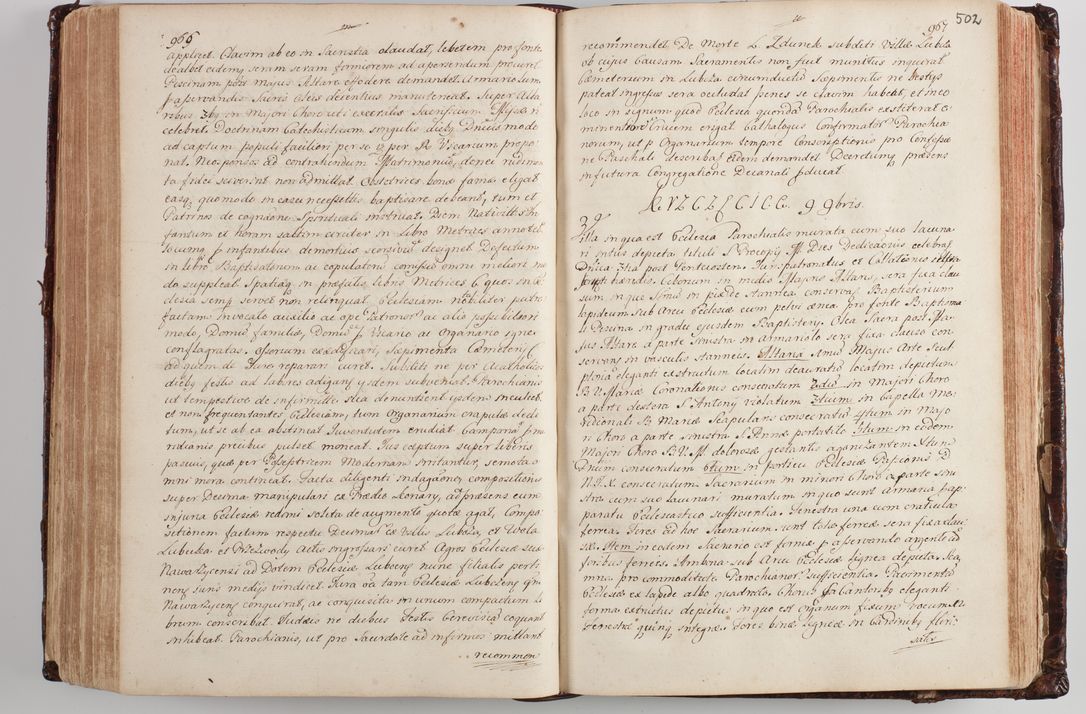 966
applicet. Clavim ab eo in Sacristia claudat, lebetem pro fonte
dealbet eidemq seram firmiorem ad aperiendum procuret
Piscinam post majus Altare effodere demandet. Armariolum
p asservandis Sacris Oleis decentius manuteneat. Super Alta
ribus in Majori Choro uti execratis Sacrificium Missæ n
celebret. Doctrinam Catechisticam singulis diebq Dnicis modo
ad captum populi faciliori per se et per R Vicarium propo
nat. Neosponsos ad contrahendum Matrimoniũ, donec rudimen
ta fidei sciverint non admittat. Obstetrices bonæ famæ eligat
easq quomodo in casu necessitis baptisare debeant, tum et
Patrinos de cognaõne Spirituali instruat. Diem Nativittis In
fantium et horam saltim circiter in Libro Metrices annotet
Locumq p infantibus demortuis seorsivũ designet Defectum
in libro Baptisatorum ac copulatorũ comissũ omni meliori mo
do suppleat. Spatiaq in præfatis libris Metrices quos in Ec
clesia semp servet non relinquat. Ecclesiam notabiliter putre
factam invocato auxilio ac ope Patronorũ ac alio possibiliori
modo, Domũ familiæ, Domũq Vicario ac Organario igne
conflagratas. Ossorium exædificari, Sæpimenta Cæmeterij
ad quem de Jure reparari curet. Subditi ne per Acatholicos
diebq festis ad labores adigant ysdem subveniat. Parochianis
ut tempestive de infirmitte sua denuntient ijsdem inculcet
et non frequentantes Ecclesiam, tum Organarium crapulæ dedi
tum, ut se ab ea abstineat Juventutem erudiat Campanã p me
ridianis precibus pulset moneat. Jus captum super liberis
pascuis, quæ per Possestricem Modernam irritantur, semota
omni mora contineat. Facta diligenti indagaõne, compositionis
super Decima manipulari ex Prædio Leonary, ad præsens cum
injuria Ecclesiæ redimi solita de augmento quotæ agat, Compo
sitionem factam respectu Decimæ ex Villis Lubzia, et Wola
Lubecka. et Przewody Actis ingrossari curet Agros Ecclesiæ suæ
Nawarzycensi ad Dotem Ecclesiæ Lubcens nunc filialis perti
nens suris medijs vindicet. Jura oã tam Ecclesiæ Lubczens qm
Nawarzycens conquirat, ac conquisita in unum compactum Li
brum conscribat. Judæis ne diebus Festis Cerevisiã coquant
inhibeat. Parochianis, ut pro Sacerdote ad infirmos mittant
recommen
967
502
recommendet De Morte L Zdunek subditi Villæ Lubzia
ob cujus causam Sacramentis non fuit munitus inquirat
Cæmeterium in Lubzia circumductis Sæpimentis ne bestijs
pateat ingressus sera occludat penes se clavim habeat, et in eo
loco in signum quod Ecclesia quondã Parochialis exstiterat e
minentiorẽ Crucem erigat Cathalogus Confirmatorũ Parochia
norum, ut p Organarium tempore Conscriptionis pro Confessio
ne Paschali describat eidem demandet Decretumq præsens
in futura Congregatione Decanali p ducat
KRZCZĘCICE 9 9bris.
Illa in qua est Ecclesia Parochialis murata cum suo lacuna
ri intus depicta tituli S Procopij M Dies Dedicaõnis celebrat
Dnica post Pentecosten. Juris patronatus et Collaõionis
hæredis. Ciborium in medio Majoris Altaris, sera fixa clau
sum in quo Sſmũ in pixide stannea conservat Baptisterium
lapideum Sub Arcu Ecclesiæ cum pelvi ænea pro fonte Baptisma
li Piscina in gradu ejusdem Baptistery. Olea Sacra post Ma
jus Altare a parte sinistra in Armariolo sera fixa clauso con
servant in vasculis stanneis. Altaria Imũ Majus Arte Scul
ptoria eleganti exstructum locatim deauratũ locatim depictum
B V Mariæ Coronationis consecratum 2dũ in Majori Choro
a parte dextera S Antonij violatum 3tium in Capella Me
ridionali B Mariæ Scapularis consecratũ 4tum in Majo
ri Choro a parte sinistra S Annæ portatile 5tum in eodem
Majori Choro B V M dolorosæ gestantis agonisantem Xtum
Dnum consecratum 6tum in porticu Ecclesiæ Passionis D
N J X consecratum Sacrarium in minori Choro a parte sini
stra cum suo lacunari muratum in quo sunt Armaria pap
paratu Ecclesiastico sufficientia. Fenestra una cum craticula
ferrea. Fores ad hoc Sacrarium sunt totæ ferreæ sera fixa clau
sæ. Item in eodem Sacrario est fornix p asservando argento cũ
foribus ferreis. Ambona sub Arcu Ecclesiæ lignea depicta. Sca
mna pro commoditate Parochianorũ sufficientia. Pavimentũ
Ecclesiæ ex lapide albo quadrato. Chorus p Cantoribq eleganti
forma extructus depictus in quo est Organum fissum
Fenestræ quinq integræ. Fores binæ ligneæ in Cardinibq ferri
satis